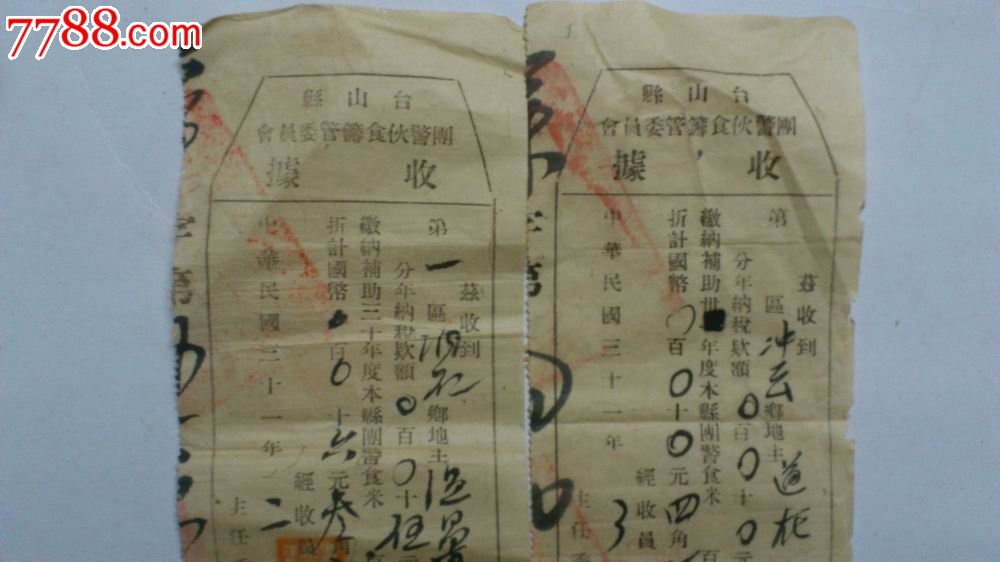 7788.com
台山縣
團警伙食籌管委員會
收據
茲收到
第一區
鄉地主
分年納稅欵額0百0十伍元
繳納補助三十年度本縣團警食米
折計國幣 百0十六元叁角
經收員
中華民國三十一年 二
主任委
字第
台山縣
團警伙食籌管委員會
收據
茲收到
第 區冲云鄉地主道
分年納稅欵額0百0十0元
繳納補助世 年度本縣團警食米
折計國幣0百0十0元四角
經收員
中華民國三十一年 3
主任委
字第